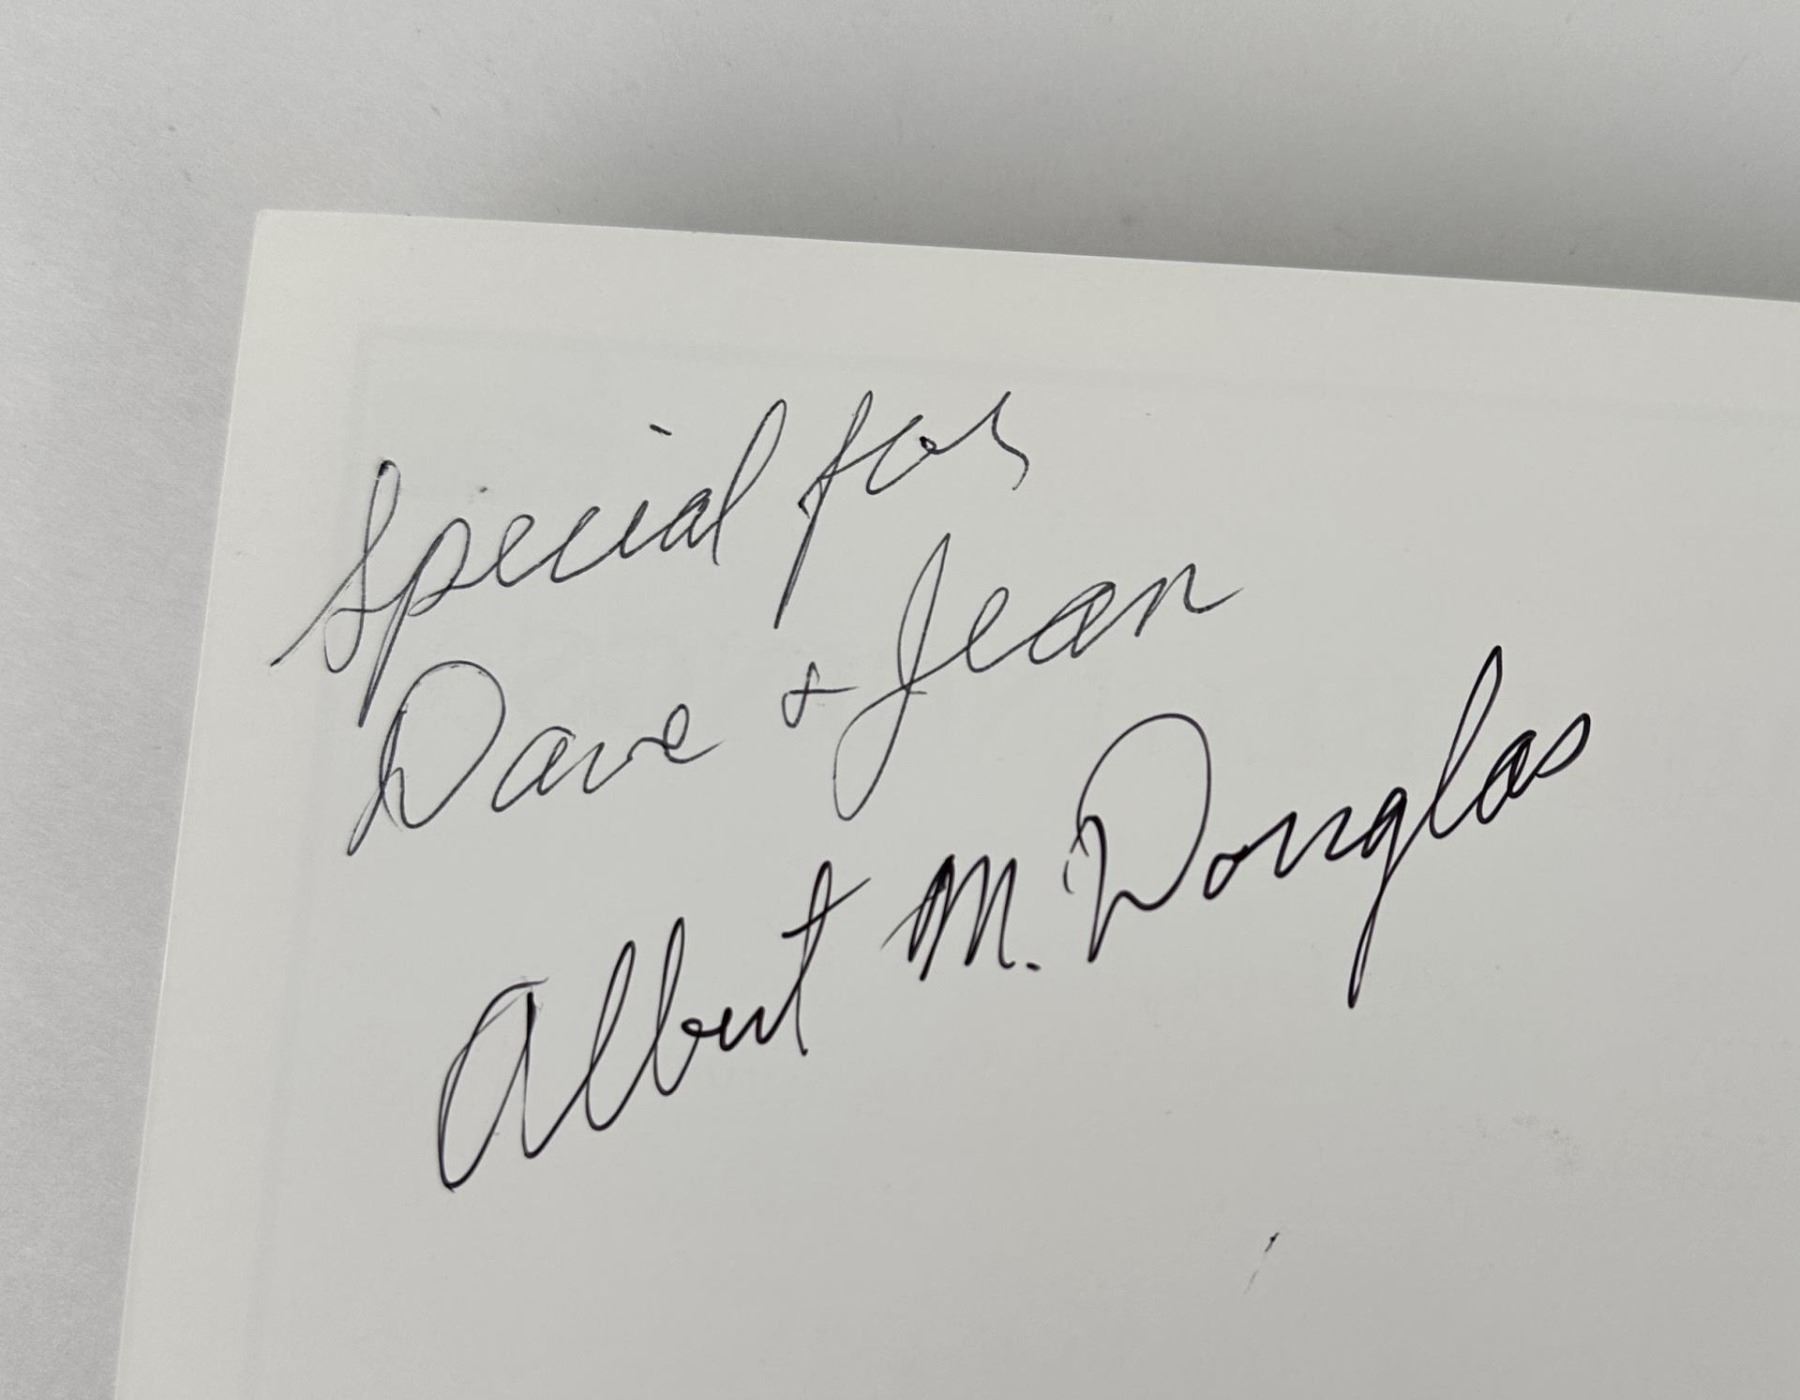 Special for
Dave + Jean
Albert M. Douglas